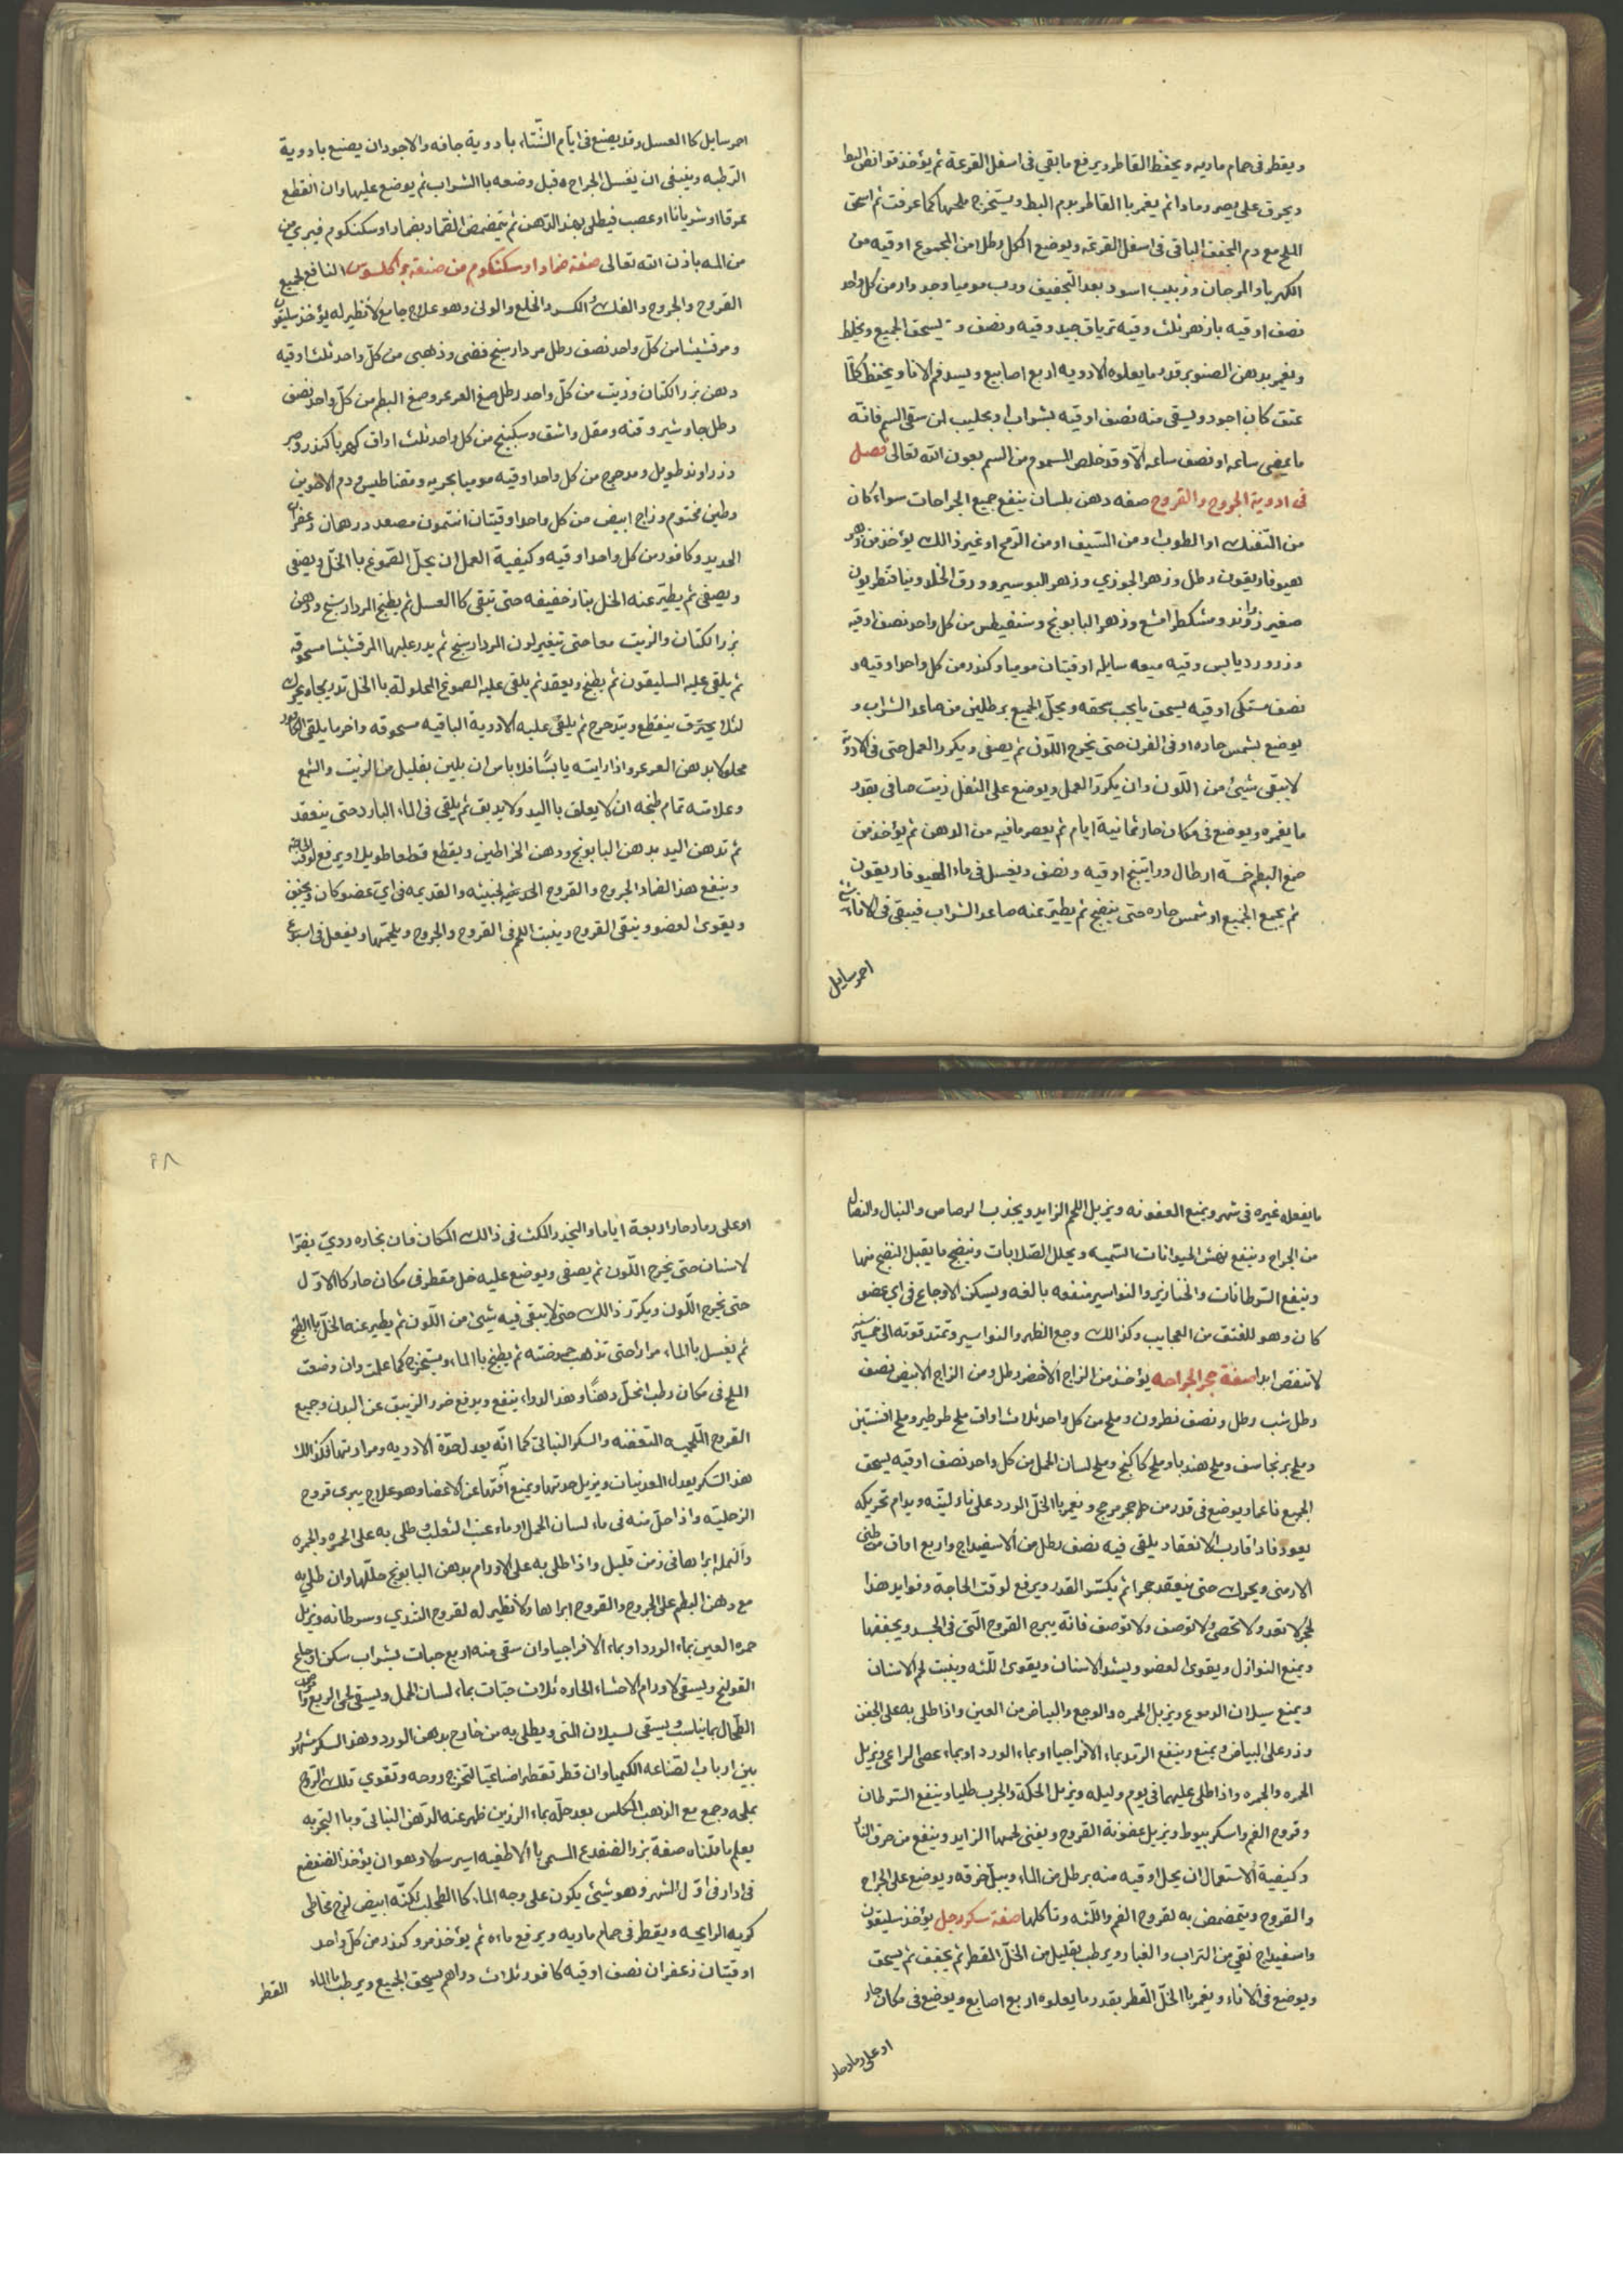 ويقطر في حمام ماريه ويحفظ القاطر ويرفع ما بقي في اسفل القرعة ثم يؤخذ قوانص البط
ويحرق على يصير رمادا ثم يغمر باالقاطر بدم البط ويستخرج ملحها كما عرفت ثم اسحق
الملح مع دم المجفف الباقي في اسفل القرعة ويوضع الكل رطل من المجموع اوقيه من
الكهربا والمرجان وزبيب اسود بعد التجفيف ورب موميا وجدوار من كل واحد
نصف اوقيه بازهر ثلث وقيه ترياق جيد وقيه ونصف يسحق الجميع ويخلط
ويغمر بدهن الصنوبر قدر ما يعلوه الادويه اربع اصابيع ويسد فم الانا ويحفظ كلما
عتق كان اجود ويسقى منه نصف اوقيه بشراب او بحليب لمن سقى السم فانه
ما يمضى ساعه او نصف ساعه الا وقد خلص المسموم من السم بعون الله تعالى فصل
في ادوية الجروح والقروح صفه دهن بلسان ينفع جميع الجراحات سواء كان
من التفنك او الطوب او من السيف او من الرمح او غير ذالك يؤخذ من زهر
هيوفاريقون رطل وزهر الجوزي وزهر البوسير وورق الخلد وينا قنطريون
صغير زراوند ومشكطرامشع وزهر البابونج وسنفيطس من كل واحد نصف اوقيه
وزر ورد يابس وقيه ميعه سايله اوقيتان موميا وكندر من كل واحد اوقيه و
نصف مستكى اوقيه يسحق ما يجب سحقه ويحل الجميع برطلين من صاعد الشراب و
يوضع بشمس حاره او في الفرن حتى يخرج اللون ثم يصفى ويكرر العمل حتى في الادوية
لا يبقى شيئ من اللون وان يكرر العمل ويوضع على الثفل زيت صافي بقدر
ما يغمره ويوضع في مكان حار ثمانية ايام ثم يعصر ما فيه من الدهن ثم يؤخذ من
صمغ البطم خمسة ارطال وراتينج اوقيه ونصف ويغسل في ماء الهيوفاريقون
ثم يجمع الجميع او شمس حاره حتى ينضج ثم يطير عنه صاعد الشراب فيبقى في الاناء شئ
احمر سايل
احمر سايل كاالعسل وقد يصنع في ايام الشتاء بادوية جافه والاجود ان يصنع بادوية
الرطبه وينبغى ان يغسل الجراحه قبل وضعه باالشراب ثم يوضع عليها وان انقطع
عرقا او شريانا او عصب فيطلى بهذ الدهن ثم يتمضمض الضماد بضماد اوسكنكوم فيبرئ من
من المه باذن الله تعالى صفة ضماد اوسكنكوم من صنعة براكلسوس النافع لجميع
القروح والجروح والفك والكسر والخلع والوثى وهو علاج جامع لا نظير له يؤخذ سليقون
ومرقشيشا من كل واحد نصف رطل مردارسنج فضى وذهبى من كل واحد ثلث اوقيه
دهن بزر الكتان وزيت من كل واحد رطل صمغ العرعر وصمغ البطم من كل واحد نصف
رطل جاوشير وقنه ومقل واشق وسكبينج من كل واحد ثلث اواق كهربا كندر وصبر
وزراوند طويل ومدحرج من كل واحد اوقيه موميا بحريه ومقناطيس ودم الاخوين
وطين مختوم وزاج ابيض من كل واحد اوقيتان انتمون مصعد درهمان زعفران
الحديد وكافور من كل واحد اوقيه وكيفية العمل ان يحل الصموغ باالخل ويصفى
ويصفى ثم يطير عنه الخل بنار خفيفه حتى تبقى كاالعسل ثم يطبخ المردارسنج ودهن
بزر الكتان والزيت معا حتى يتغير لون المردارسنج ثم يدر عليها المرقشيشا مسحوقه
ثم يلقى عليه السليقون ثم يطبخ ويعقد ثم يلقى عليه الصموغ المحلولة باالخل تدريجا ويحرك
لئلا يحترق ينقطع ويتدحرج ثم يلقى عليه الادوية الباقيه مسحوقه واخر ما يلقى الكافور
محلولا بدهن العرعر واذا رايته يابسا فلا باس ان يلين بقليل من الزيت والشمع
وعلامته تمام طبخه ان لا يعلق باليد ولا يدبق ثم يلقى في الماء البارد حتى ينعقد
ثم تدهن اليد بدهن البابونج ودهن الخراطين ويقطع قطعا طويلا ويرفع لوقت الحاجة
وينفع هذ الضماد الجروح والقروح الخبيثه والقديمه في اي عضو كان ويجفف
ويقوى العضو وينقى القروح وينبت اللحم في القروح والجروح ويلحمها ويفعل في اسبوع
ما يفعله غيره في شهر ويمنع العفونه ويزيل اللحم الزايد ويجذب الرصاص والنبال والنصال
من الجراح وينفع نهش الحيوانات السميه ويحلل الصلابات وينضج ما يقبل النضج منها
وينفع السرطانات والخنازير والنواسير منفعه بالغه ويسكن الاوجاع في اي عضو
كان وهو للفتق من العجايب وكذالك وجع الظهر والنواسير وتمتد قوته الى خمسين سنة
لا تنقص ابدا صفة حجر الجراحه يؤخذ من الزاج الاخضر رطل ومن الزاج الابيض نصف
رطل شب رطل ونصف نطرون وملح من كل واحد ثلاث اواق ملح طرطير وملح افسنتين
وملح برنجاسف وملح هندبا وملح كاكنج وملح لسان الحمل من كل واحد نصف اوقيه يسحق
الجميع ناعما ويوضع في قدر من حجر مرجج ويغمر باالخل الورد على نار لينه ويدام تحريكه
يعود فاذا قارب الانعقاد يلقى فيه نصف رطل من الاسفيداج واربع اواق من طين
الارمنى ويحرك حتى ينعقد حجرا ثم يكسر القدر ويرفع لوقت الحاجة وفوايد هذا
الحجر لا تعد ولا تحصى ولا توصف ولا توصف فانه يبرء القروح التى في الجسد ويجففها
ويمنع النوازل ويقوى العضو ويشد الاسنان ويقوى اللثه وينبت لحم الاسنان
ويمنع سيلان الدموع ويزيل الحمره والوجع والبياض من العين واذا طلى به على الجفن
وذر على البياض ويمنع وينفع الرمد بماء الافراجيا او بماء الورد او بماء عصى الراعى ويزيل
الحمره والجمره واذا طلى عليهما في يوم وليله ويزيل الحكة والجرب طليا وينفع السرطان
وقروح الفم واسكربيوط ويزيل عفونة القروح ويفنى لحمها الزايد وينفع من حرق النار
وكيفية الاستعمال ان يحل اوقيه منه برطل من الماء ويبل خرقه ويوضع على الجراح
والقروح ويتمضمض به لقروح الفم واللثه وتاكلها صفة سكر زحل يؤخذ سليقون
واسفيداج نقي من التراب والغبار ويرطب بقليل من الخل المقطر ثم يجفف ثم يسحق
ويوضع في الاناء ويغمر باالخل المقطر بقدر ما يعلوه اربع اصابع ويوضع في مكان حار
او على رماد حار
٢٨
او على رماد حار اربعة اياما واليحذر المكث في ذالك المكان فان بخاره ردي يضر
لانسان حتى يخرج اللون ثم يصفى ويوضع عليه خل مقطر في مكان حار كاالاول
حتى يخرج اللون ويكرر ذالك حتى لا يبقى فيه شيئ من اللون ثم يطير عنه الخل باالطبخ
ثم يغسل باالماء مرارا حتى تذهب حموضته ثم يطبخ باالماء ويستخرج كما علمت وان وضعت
الملح في مكان رطب انحل دهنا وهذ الدواء ينفع ويدفع ضرر الزيبق عن البدن وجميع
القروح اللحميه المتعفنه والسكر النباتى كما انه يعدل حدة الادويه ومرارتها فكذالك
هذ السكر يعدل المعدنيات ويزيل حدتها ويمنع آفتها عن الاعضا وهو علاج يبرى قروح
الزحليه واذا حل منه في ماء لسان الحمل او ماء عنب الثعلب وطلى به على الحمره والجمره
والنمله ابراها في زمن قليل واذا طلى به على الاورام بدهن البابونج حللها وان طلى به
مع دهن البطم على الجروح والقروح ابراها ولا نظير له لقروح الثدي وسرطانه ويزيل
حمره العين بماء الورد او بماء الافراجيا وان سقى منه اربع حبات بشراب سكن اوجاع
القولنج ويسقى لاورام الاحشاء الحاره ثلاث حبات بماء لسان الحمل ويسقى لحمى الربع وامراض
الطحال بما يناسب ويسقى لسيلان المنى ويطلى به من خارج بدهن الورد وهذ السكر مشهور
بين ارباب لصناعه الكيميا وان قطر تقطيرا صناعيا لتخرج روحه وتقوي تلك الروح
بملحه وجمع مع الذهب المكلس بعد حله بماء الرزين ظهر عنه الدهن النباتى وباالتجربه
يعلم ما قلناه صفة بزر الضفدع المسمى باالاطينيه اسبرسولا وهو ان يؤخذ الضفضع
في ادار في اول الشهر وهو شيئ يكون على وجه الماء كاالطحلب لكنه ابيض لزج مخاطى
كريه الرايحه ويقطر في حمام ماريه ويرفع ماءه ثم يؤخذ مر وكندر من كل واحد
اوقيتان زعفران نصف اوقيه كافور ثلاث دراهم يسحق الجميع ويرطب باالماء
القطر